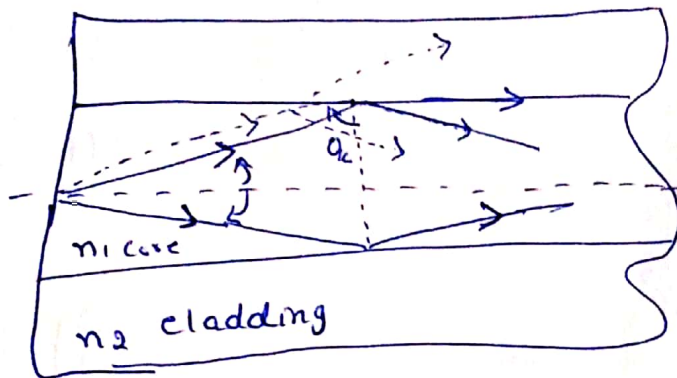 θc
n1 core
n2 cladding